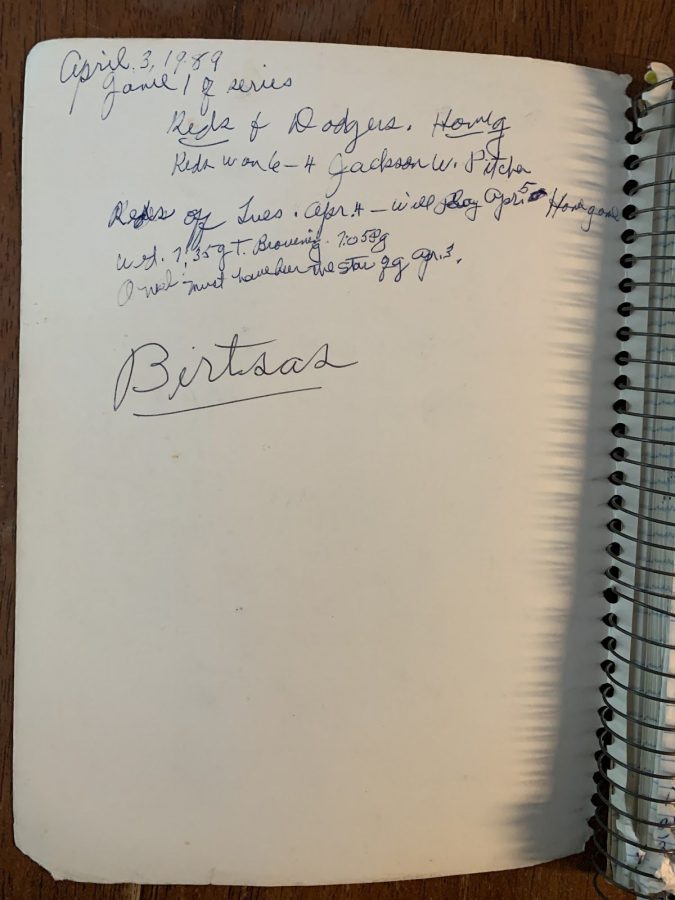 April. 3, 1989
Game 1 of series
Reds & Dodgers. Home g
Reds won 6-4 Jackson W. Pitcher
Reds off Tues. Apr. 4 - will play Apr. 5 Home game
Wed. 7:35 g T. Browning. 7:05 Pg
O'Neil must have been the star of g Apr. 3.
Birtsas